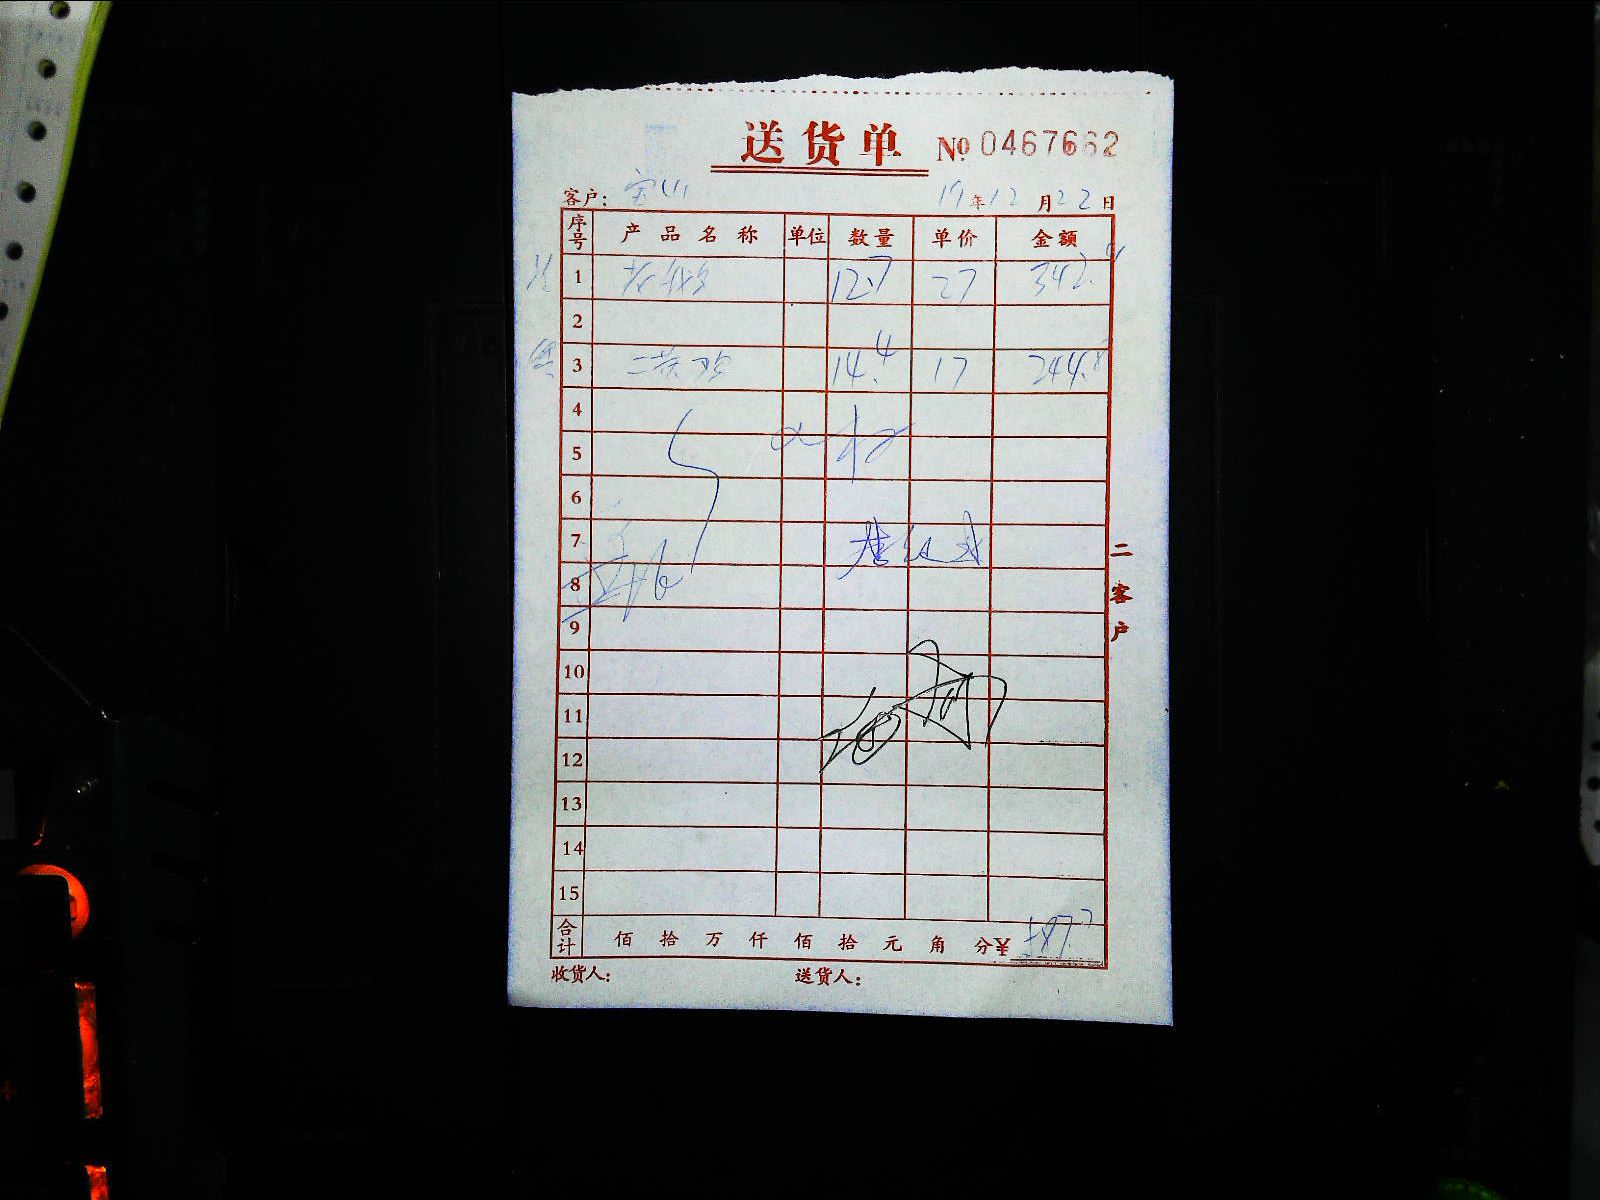 送货单 № 0467662
客户: 宝山 19年12月22日
序号 产品名称 单位 数量 单价 金额
1 12.7 27 342.9
2
3 14.4 17 244.8
4
5
6
7
8
9
10
11
12
13
14
15
合计 佰 拾 万 仟 佰 拾 元 角 分 ¥ 587.7
收货人: 送货人:
二客户